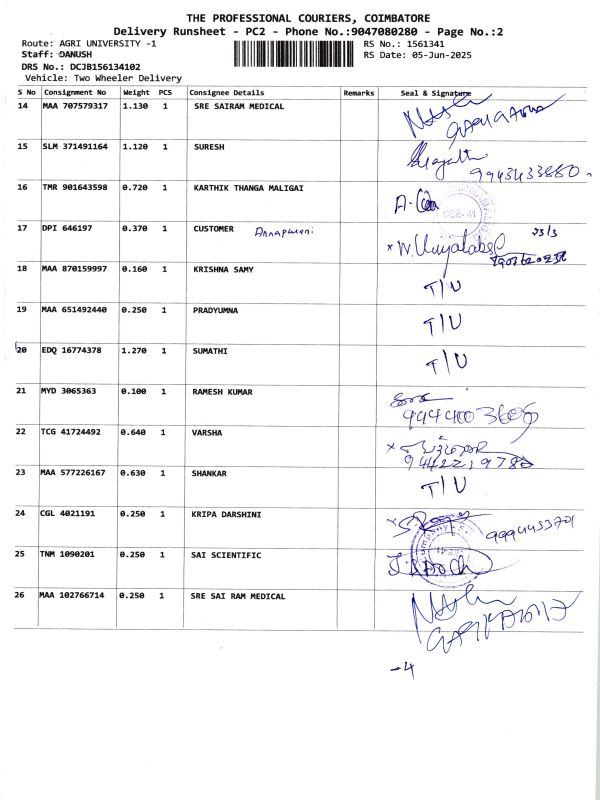 THE PROFESSIONAL COURIERS, COIMBATORE
Delivery Runsheet - PC2 - Phone No.:9047080280 - Page No.:2
Route: AGRI UNIVERSITY -1 RS No.: 1561341
Staff: DANUSH RS Date: 05-Jun-2025
DRS No.: DCJB156134102
Vehicle: Two Wheeler Delivery
S No Consignment No Weight PCS Consignee Details Remarks Seal & Signature
14 MAA 707579317 1.130 1 SRE SAIRAM MEDICAL
15 SLM 371491164 1.120 1 SURESH
9943433880
16 TMR 901643598 0.720 1 KARTHIK THANGA MALIGAI
17 DPI 646197 0.370 1 CUSTOMER Annapurni 23/3
18 MAA 870159997 0.160 1 KRISHNA SAMY T/U
19 MAA 651492440 0.250 1 PRADYUMNA T/U
20 EDQ 16774378 1.270 1 SUMATHI T/U
21 MYD 3065363 0.100 1 RAMESH KUMAR
22 TCG 41724492 0.640 1 VARSHA
9442219780
23 MAA 577226167 0.630 1 SHANKAR T/U
24 CGL 4021191 0.250 1 KRIPA DARSHINI 9994453701
25 TNM 1090201 0.250 1 SAI SCIENTIFIC
26 MAA 102766714 0.250 1 SRE SAI RAM MEDICAL
-4